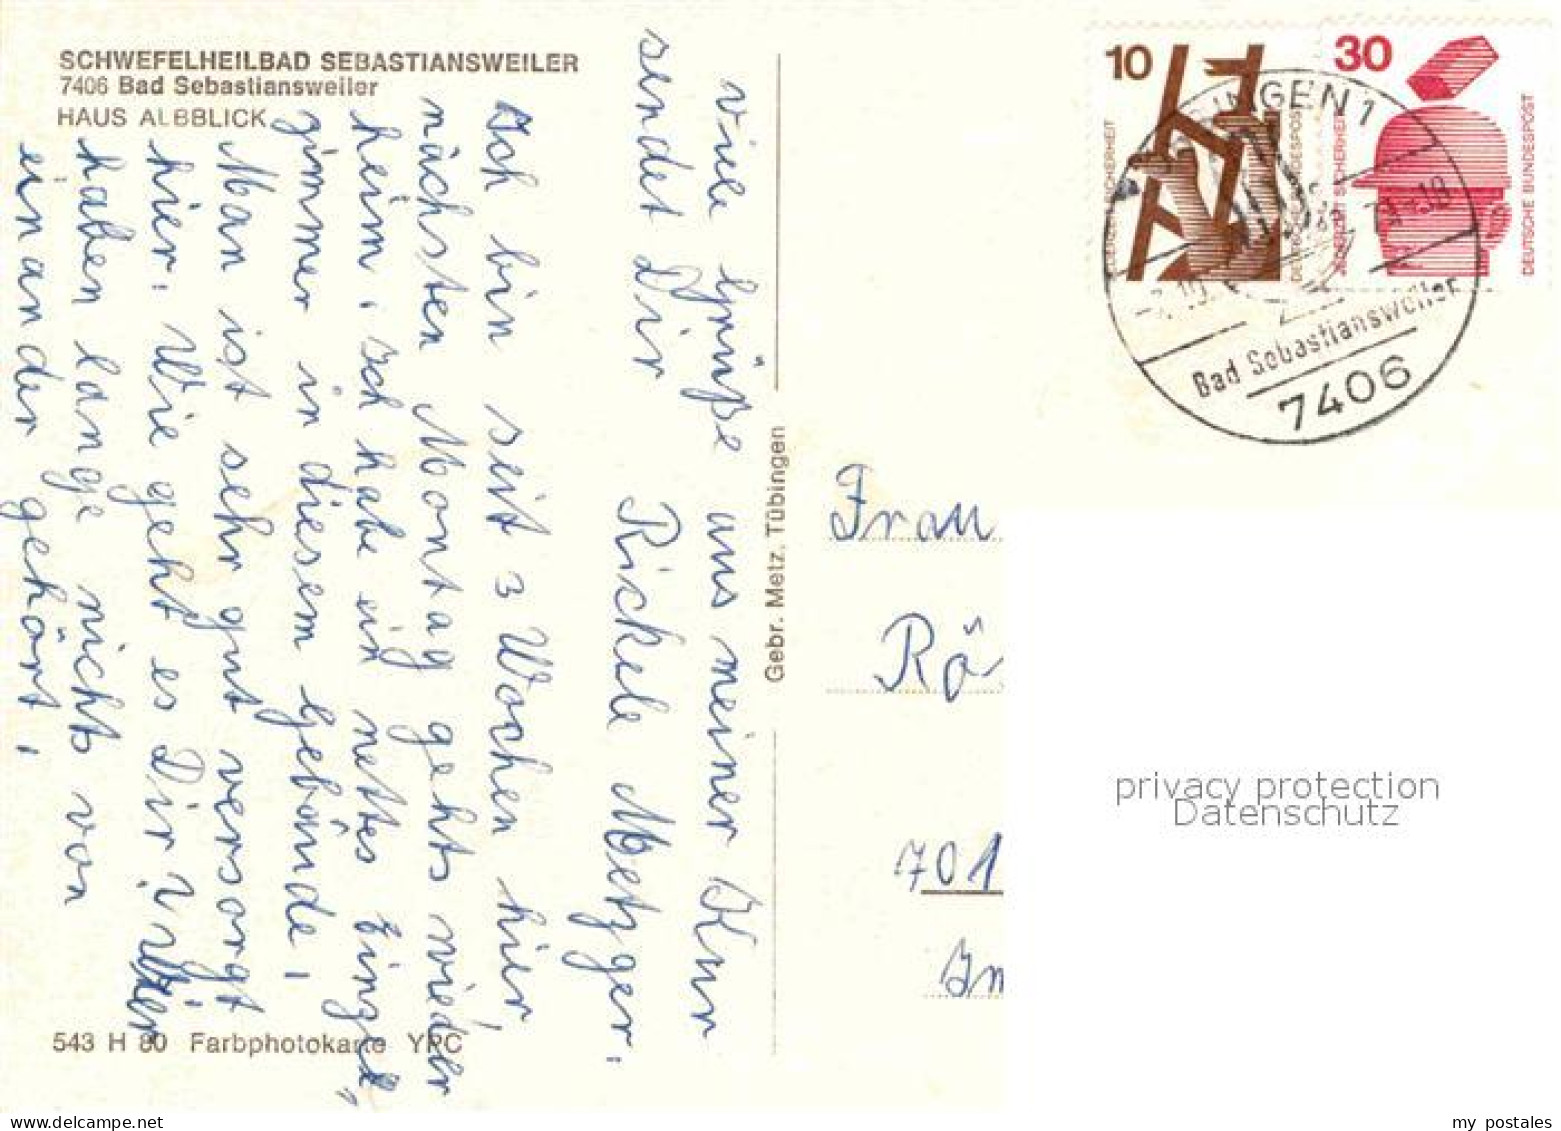 SCHWEFELHEILBAD SEBASTIANSWEILER
7406 Bad Sebastiansweiler
HAUS ALBBLICK
Viele Grüße aus meiner Kur
sendet Dir Rickele Metzger.
Ich bin seit 3 Wochen hier,
nächsten Montag gehts wieder
heim. Ich habe ein nettes Einzel"
zimmer in diesem Gebäude,
Man ist sehr gut versorgt
hier. Wie geht es Dir? Wir
haben lange nichts von
einander gehört.
543 H 80 Farbphotokarte YPC
Gebr. Metz, Tübingen
10
JEDERZEIT SICHERHEIT
DEUTSCHE BUNDESPOST
30
JEDERZEIT SICHERHEIT
DEUTSCHE BUNDESPOST
INGEN 1
Bad Sebastiansweiler
7406
Frau
Rö
701
Im
privacy protection
Datenschutz
my postales